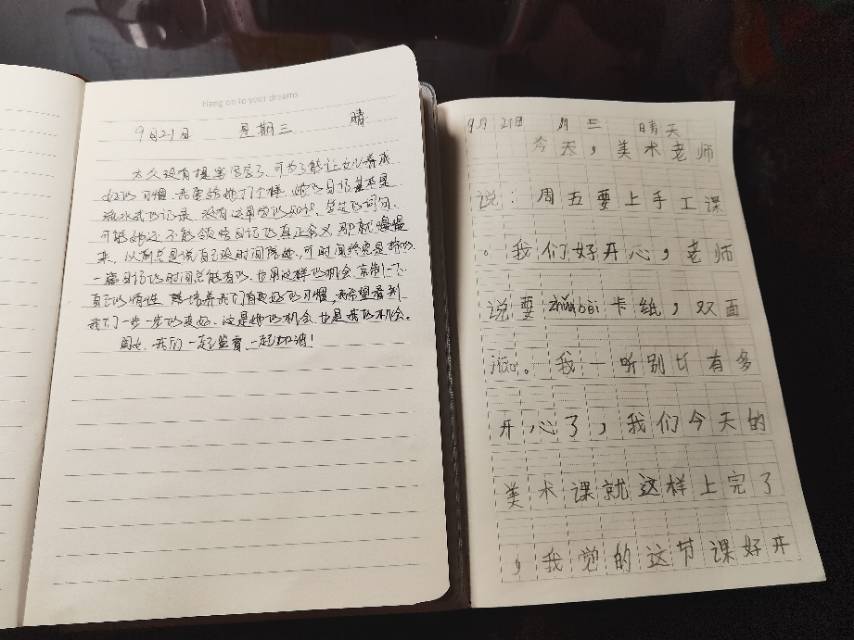 Hang on to your dreams
9月21日 星期三 晴
太久没有提笔写字了,可为了能让女儿养成
好的习惯,我要给她打个样,她的日记基本是
流水式的记录,没有过多的知识,
可能她还不能领悟日记的真正含义,那就慢慢
来,以前总是说自己没时间陪她,可时间终究是挤的
一篇日记的时间总能有的,也用这样的机会
自己的惰性,培养我们有良好的习惯,我希望看到
我们一步一步的变好,这是她的机会也是我的机会。
闺女,我们一起坚看,一起加油!
9月21日 月三 晴天
今天,美术老师
说:周五要上手工课
。我们好开心,老师
说要zhǔnbèi卡纸,双面
jiāo。我一听别廿有多
开心了,我们今天的
美术课就这样上完了
,我觉的这节课好开